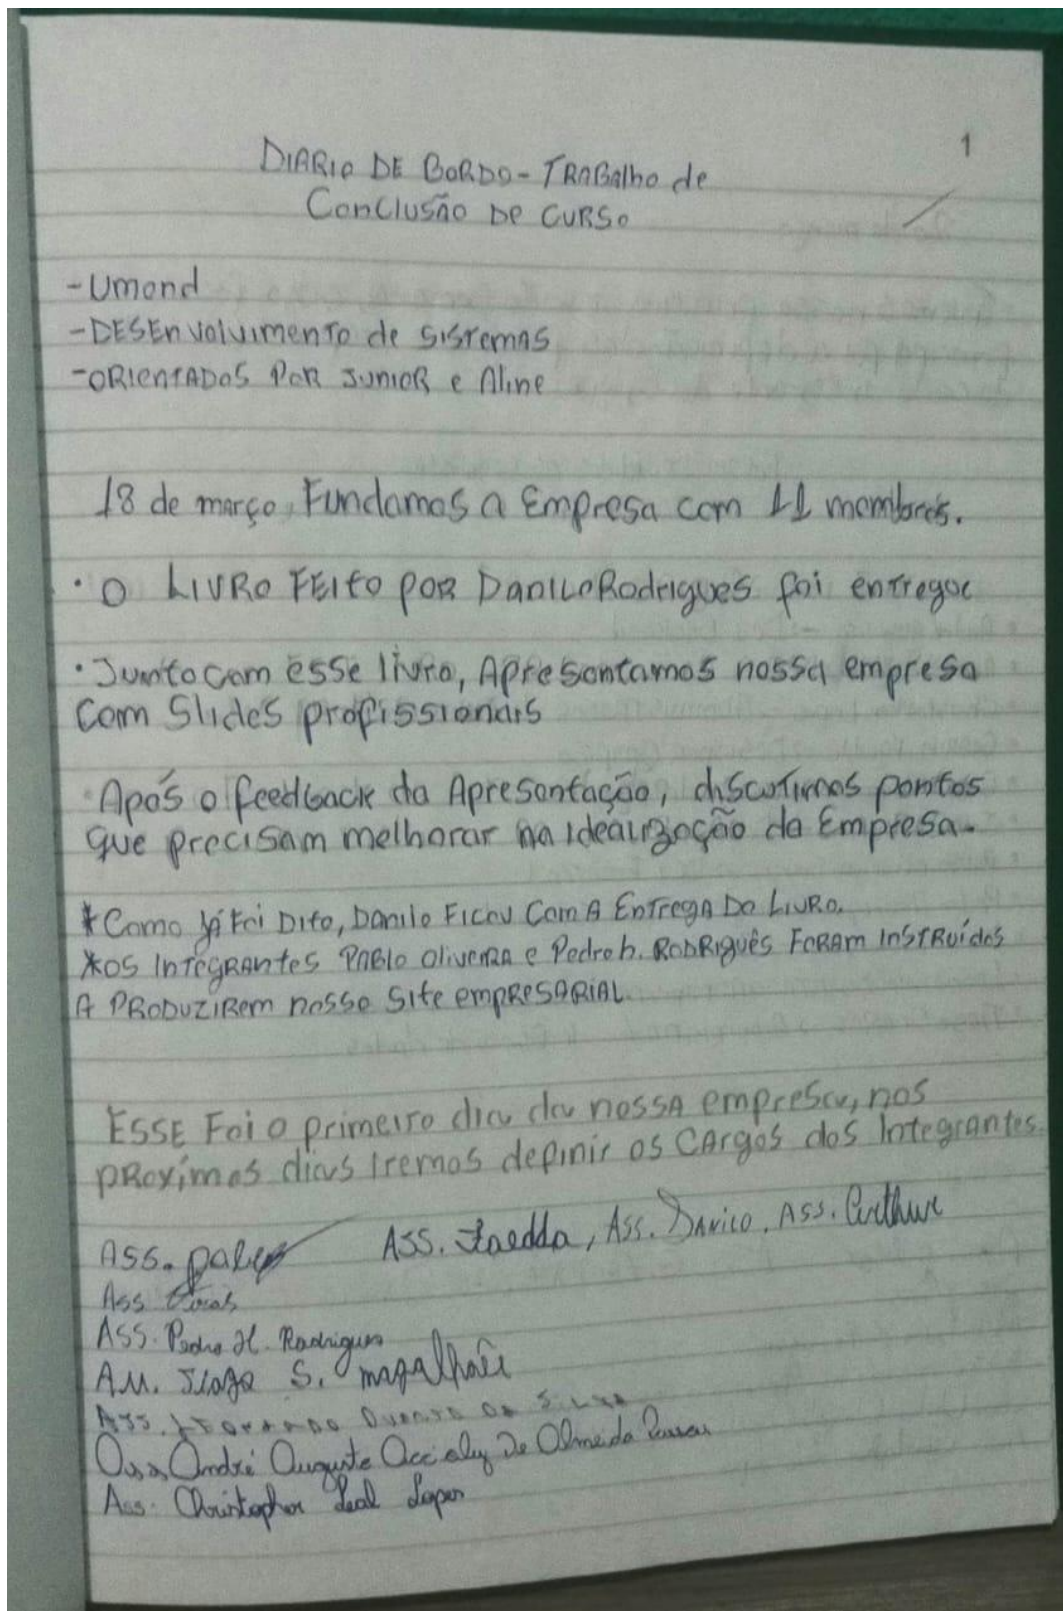 1
DIARIO DE BORDO - TRABALHO de
CONCLUSÃO DE CURSO
-Umond
-DESENVOLVIMENTO de SISTEMAS
-ORIENTADOS POR JUNIOR e Aline
18 de março, Fundamos a Empresa com 11 membros.
• O LIVRO FEITO POR Danilo Rodrigues foi entregue
• Junto com esse livro, Apresentamos nossa empresa
Com Slides profissionais
Após o feedback da Apresentação, discutimos pontos
que precisam melhorar na idealização da Empresa.
*Como já Foi Dito, Danilo Ficou Com A Entrega Do Livro.
*OS INTEGRANTES PABLO Oliveira e Pedro h. RODRIGUÊS FORAM INSTRUÍDOS
A PRODUZIREM nosso Site empresarial.
ESSE Foi o primeiro dia da nossa empresa, nos
proxímos dias iremos definir os cargos dos Integrantes.
Ass. Ass. Ass. Arthur
Ass. Pablo
Ass
Ass. Pedro H. Rodrigues
Ass. Tiago S. Magalhães
Ass. Leonardo Duarte da Silva
Ass. André Augusto Accioly De Almeida
Ass. Christopher Leal Lopes